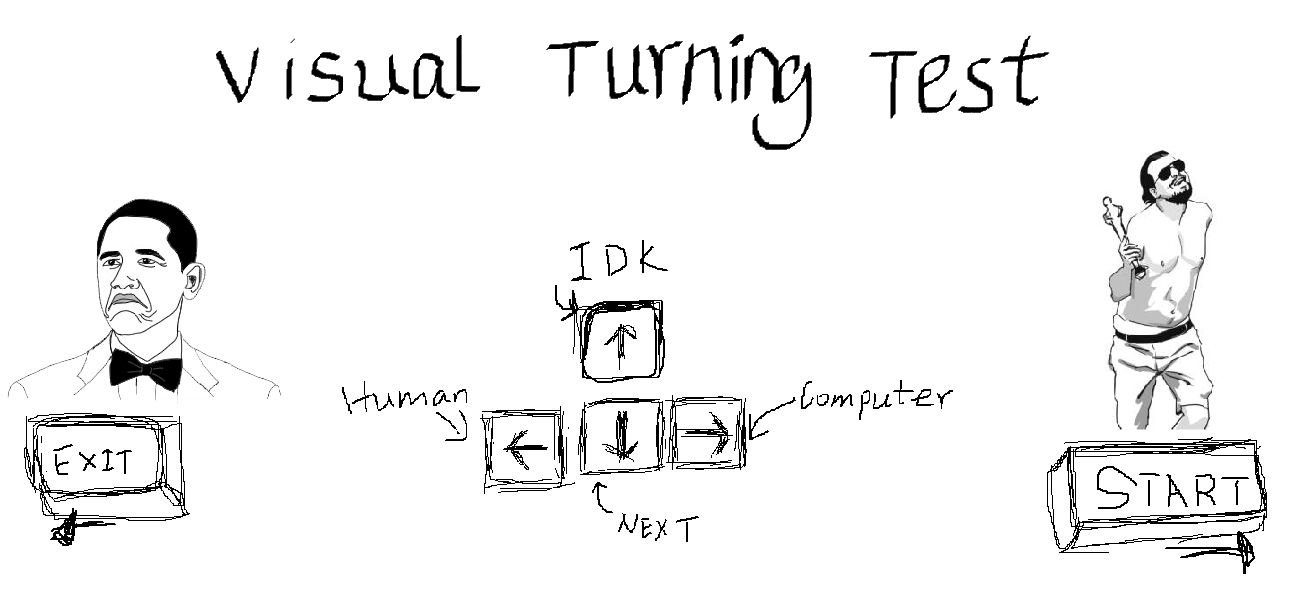 Visual Turning Test
IDK
Human
Computer
EXIT
START
NEXT